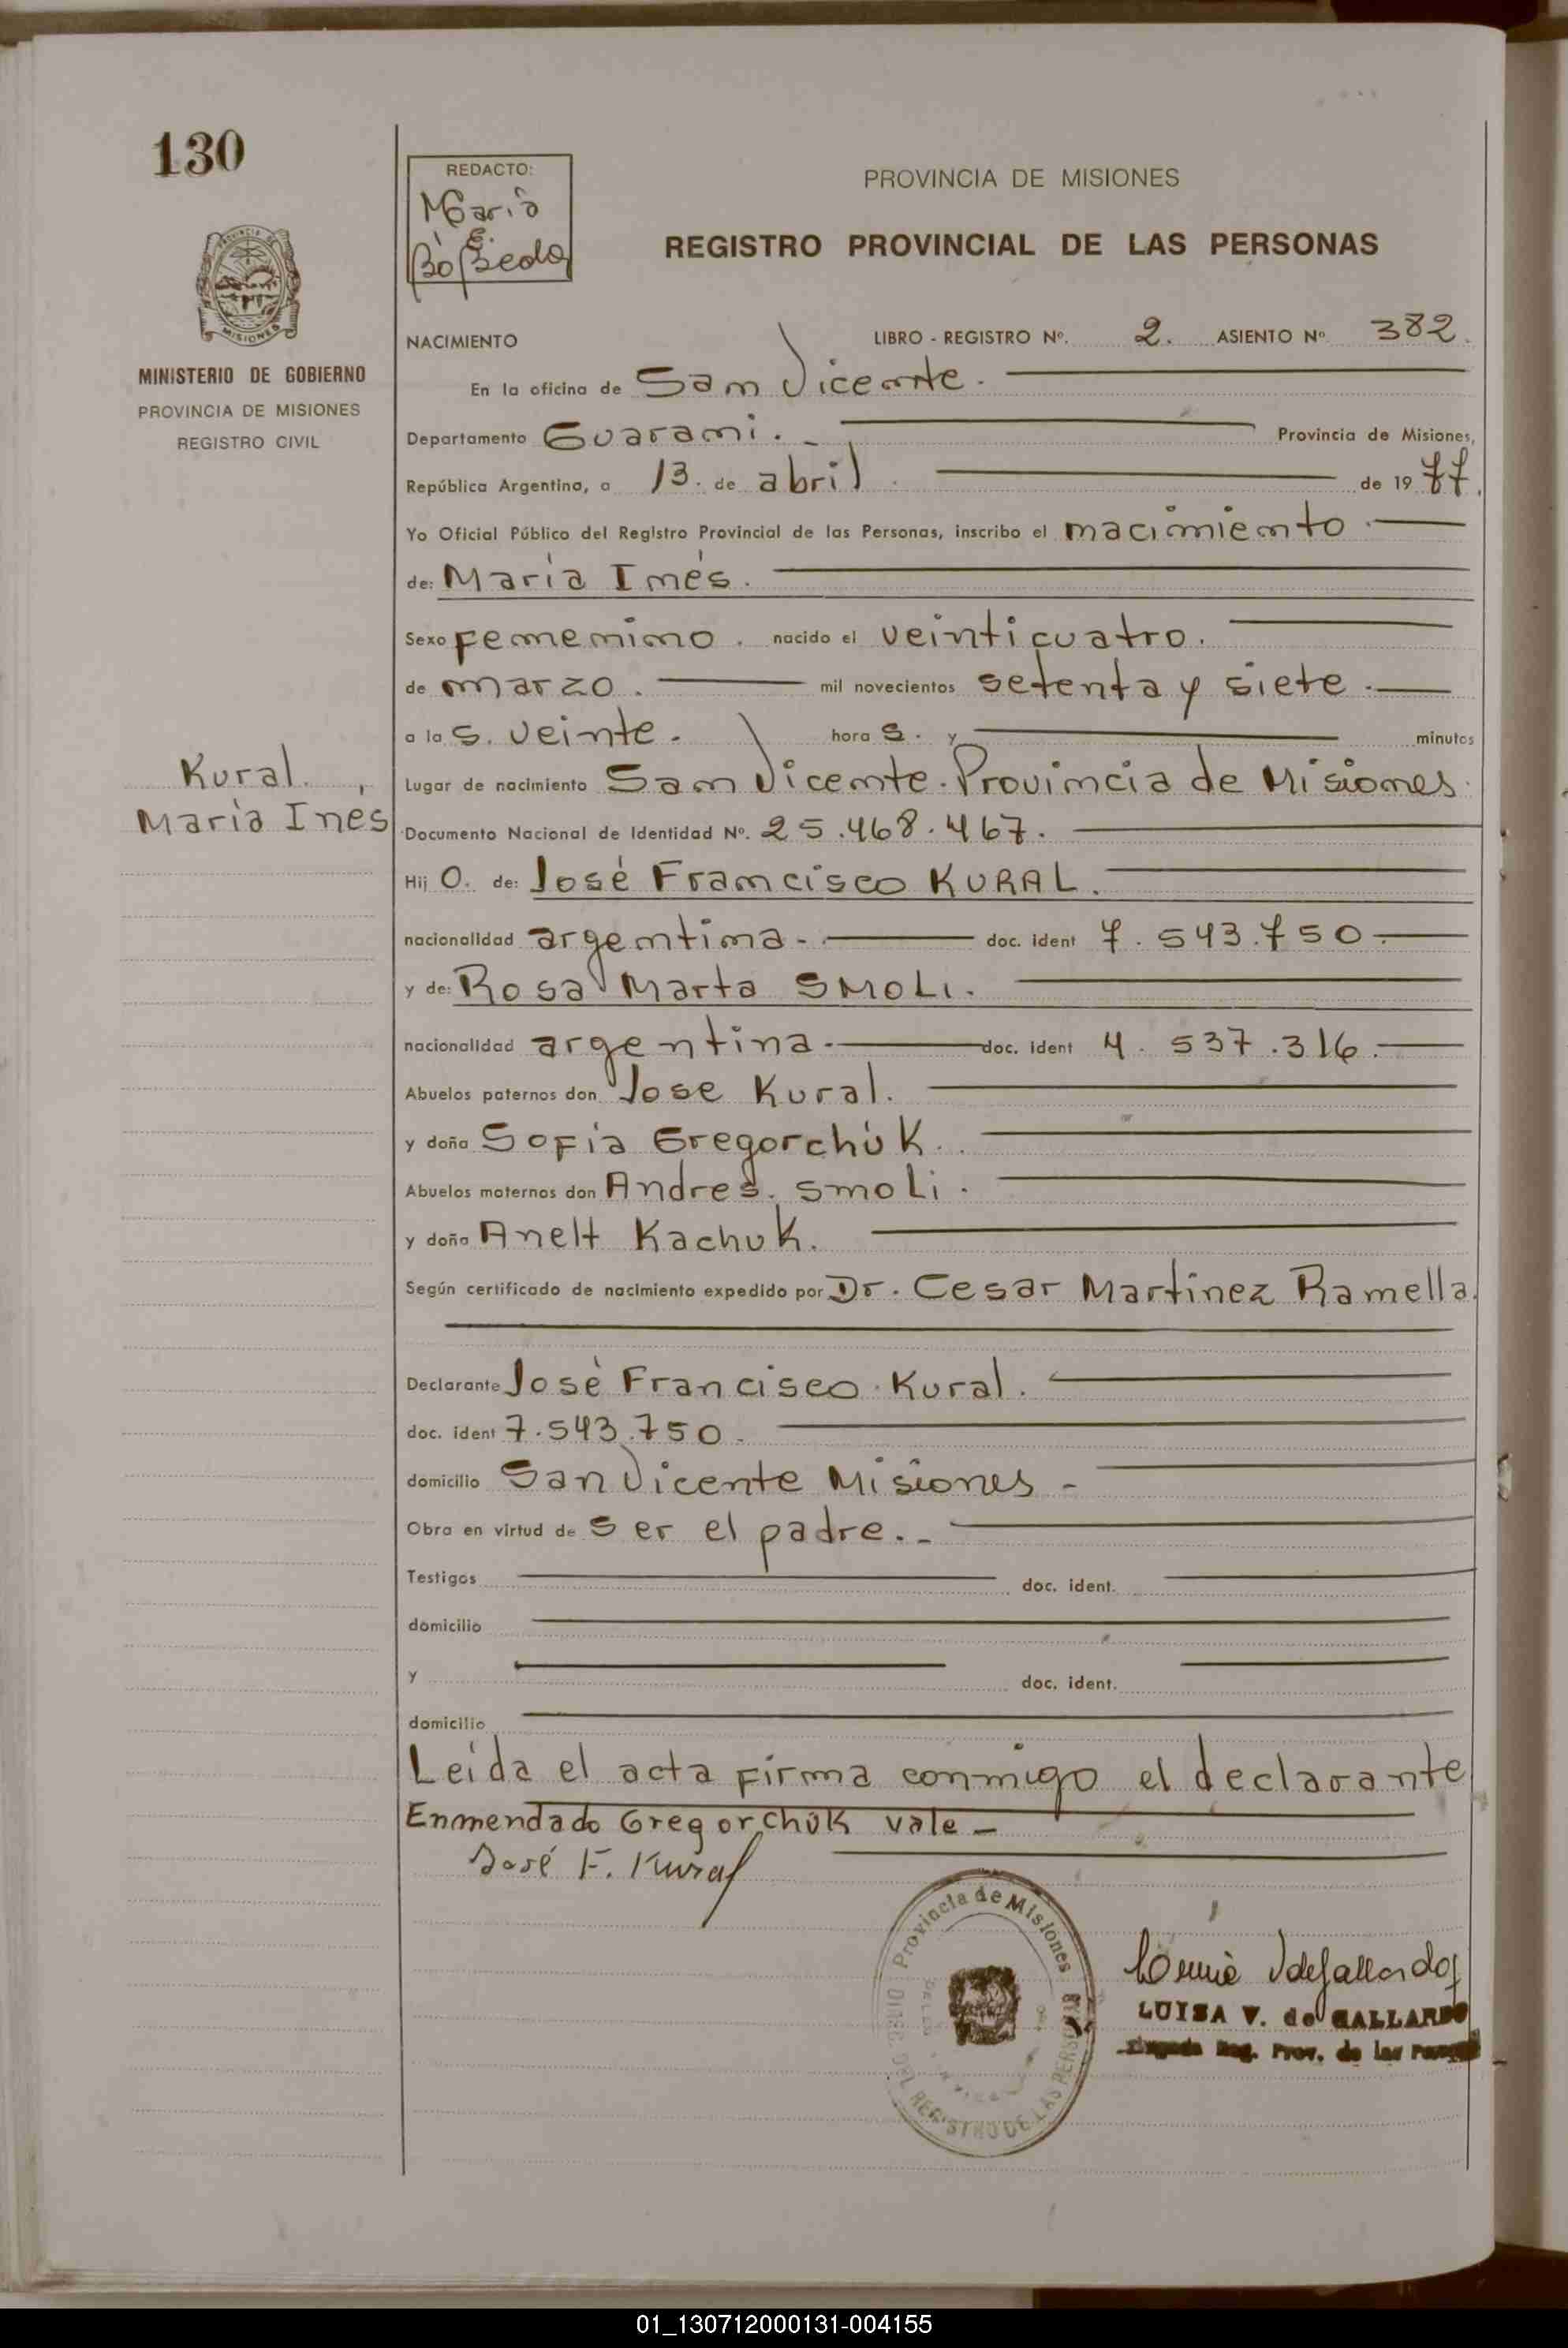 130
REDACTO:
Maria
E.
PROVINCIA DE MISIONES
REGISTRO PROVINCIAL DE LAS PERSONAS
MINISTERIO DE GOBIERNO
PROVINCIA DE MISIONES
REGISTRO CIVIL
NACIMIENTO LIBRO - REGISTRO Nº. 2. ASIENTO Nº 382.
En la oficina de San Vicente.
Departamento Guarani. Provincia de Misiones,
República Argentina, a 13. de abril de 1977.
Yo Oficial Público del Registro Provincial de las Personas, inscribo el nacimiento.
de: María Inés.
Sexo femenino. nacido el veinticuatro.
de marzo. mil novecientos setenta y siete.
a las. veinte. horas. y minutos
Kural.
María Inés
Lugar de nacimiento San Vicente. Provincia de Misiones.
Documento Nacional de Identidad Nº. 25.468.467.
Hij O. de: José Francisco KURAL.
nacionalidad argentina. doc. ident 7.543.750.
y de: Rosa Marta SMOLI.
nacionalidad argentina. doc. ident 4.537.316.
Abuelos paternos don Jose Kural.
y doña Sofía Gregorchúk.
Abuelos maternos don Andres. Smoli.
y doña Anelt Kachuk.
Según certificado de nacimiento expedido por Dr. Cesar Martinez Ramella.
Declarante José Francisco Kural.
doc. ident 7.543.750.
domicilio San Vicente Misiones -
Obra en virtud de ser el padre.-
Testigos doc. ident.
domicilio
y doc. ident.
domicilio
Leída el acta firma conmigo el declarante
Enmendado Gregorchúk vale -
José F. Kural
Provincia de Misiones
DEL REGISTRO DE LAS PERSONAS
LUISA V. de GALLARDO
Reg. Prov. de las
01_130712000131-004155